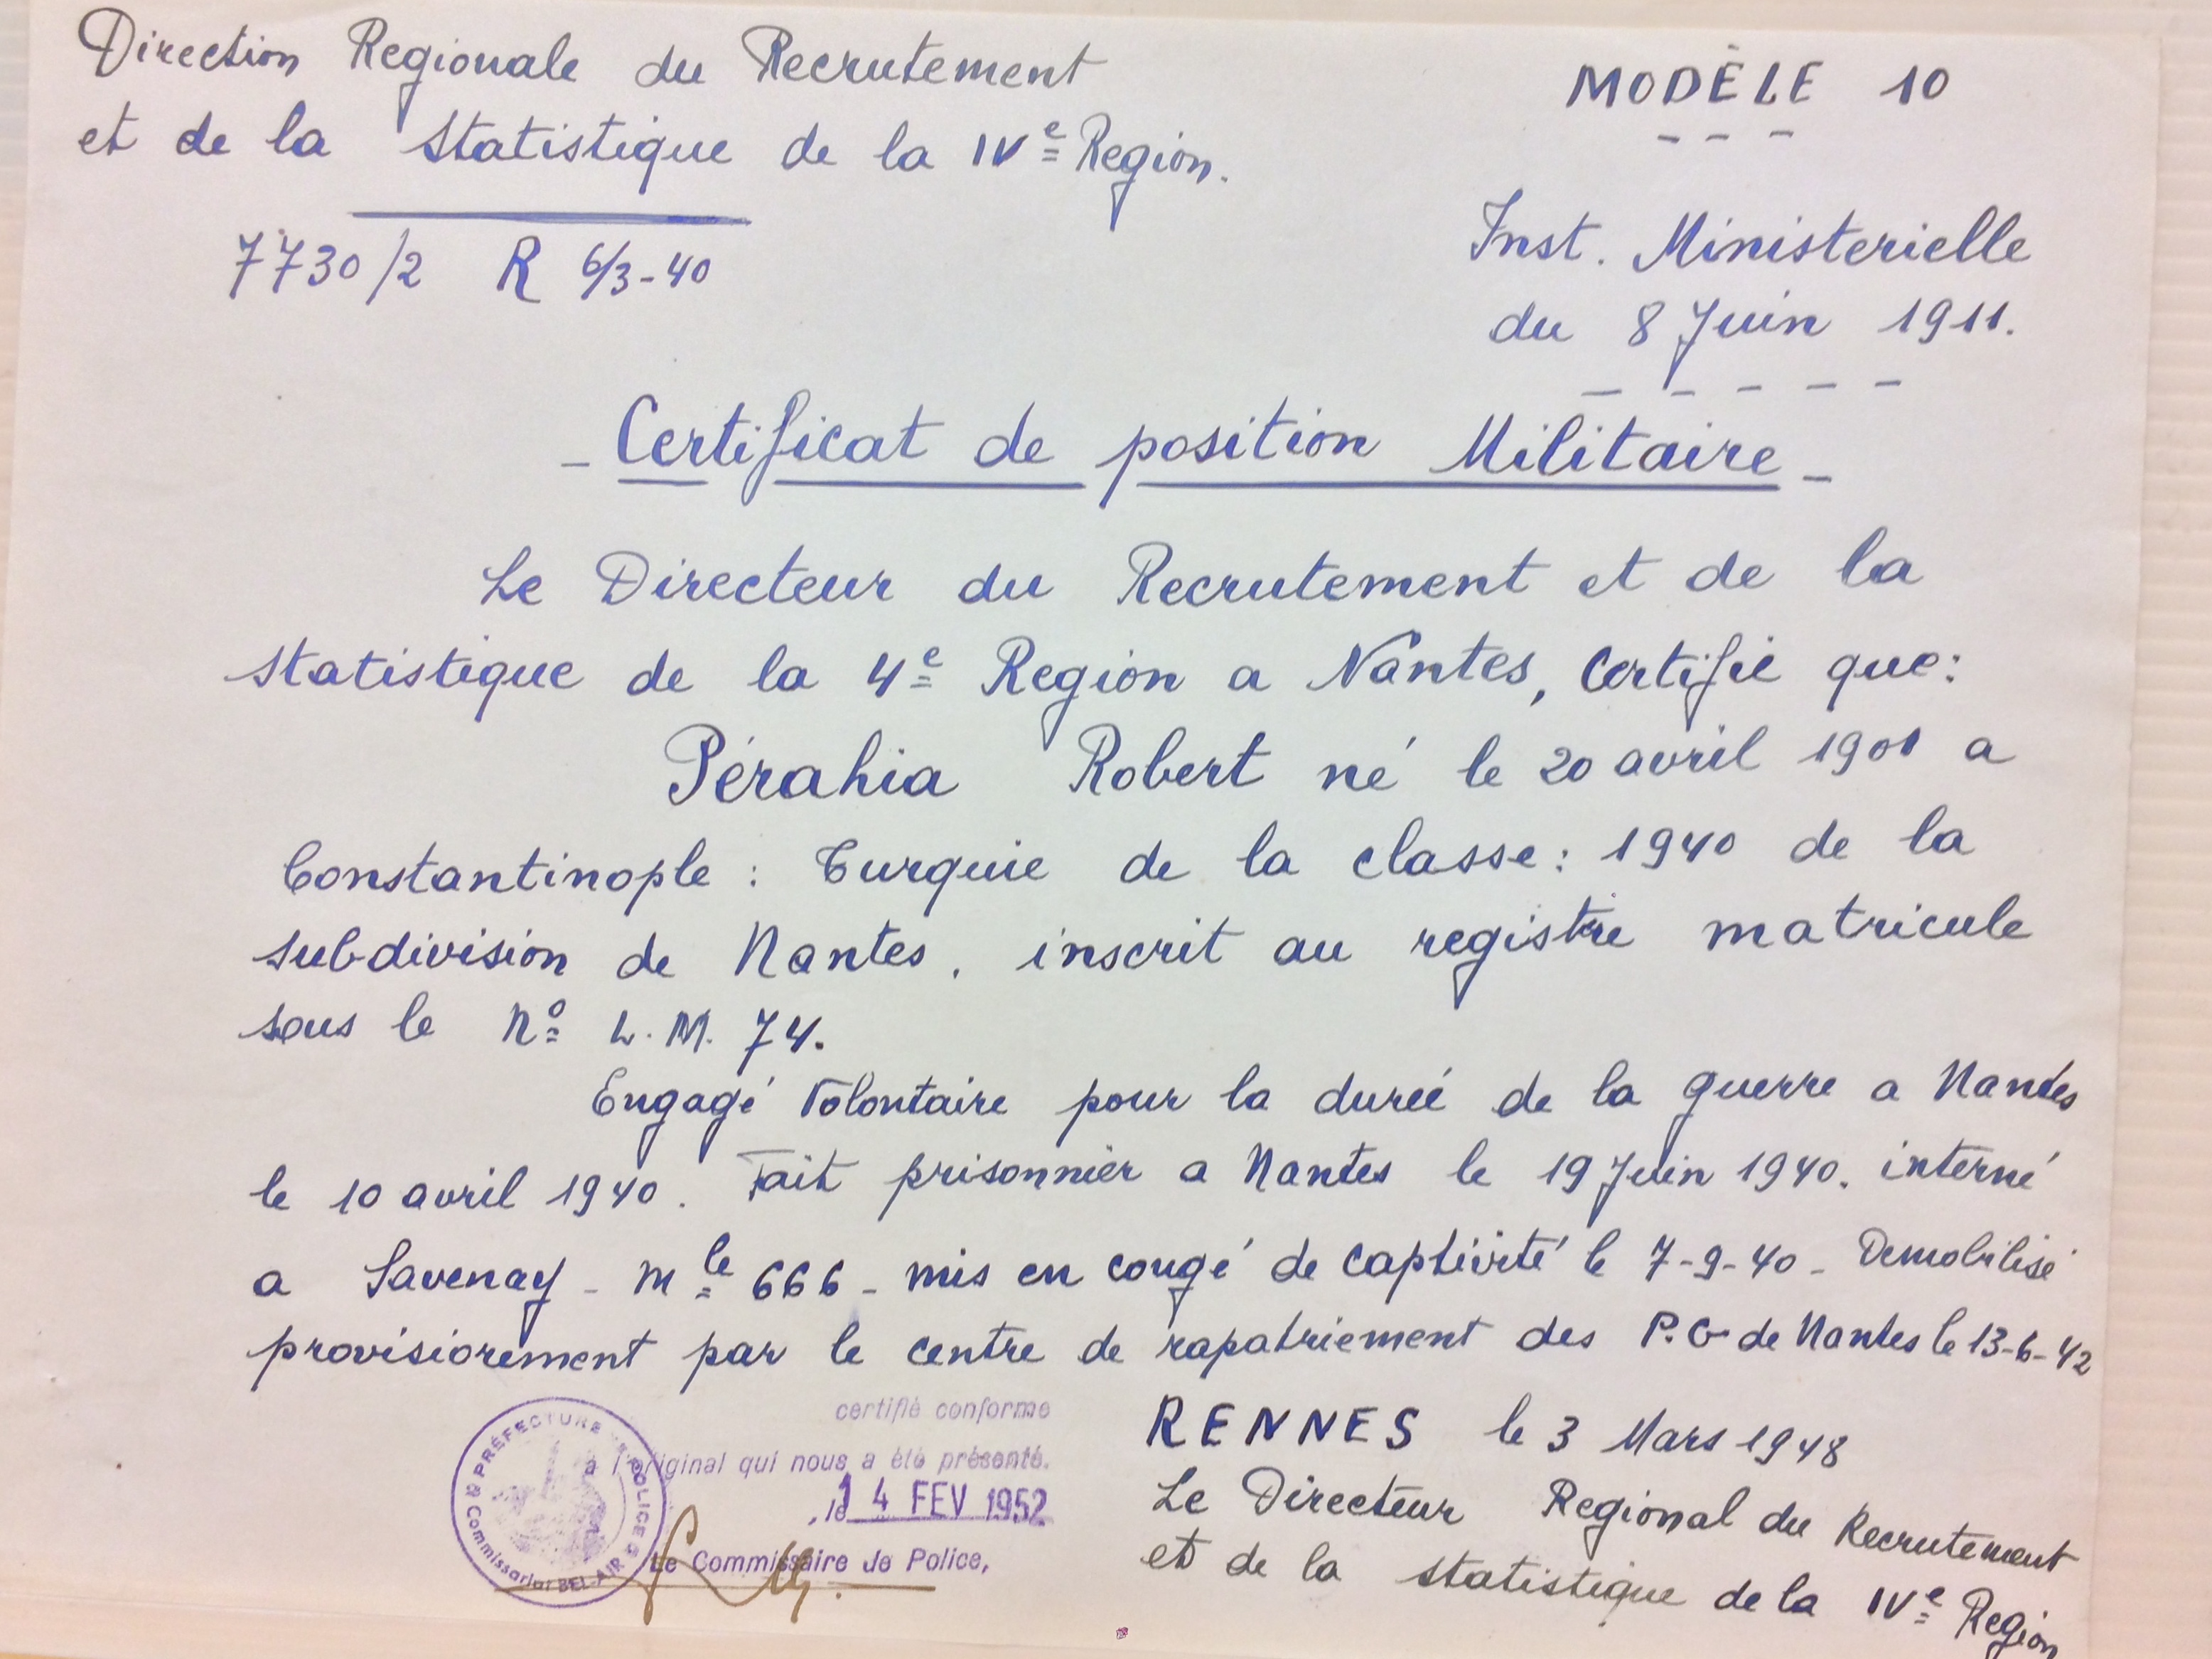 Direction Regionale du Recrutement
et de la Statistique de la IVe Region.
7730/2 R 6/3-40
MODÈLE 10
Inst. Ministerielle
du 8 Juin 1911.
- Certificat de position Militaire -
Le Directeur du Recrutement et de la
statistique de la 4e Region a Nantes, Certifie que:
Pérahia Robert né le 20 avril 1901 a
Constantinople : Turquie de la classe: 1940 de la
subdivision de Nantes. inscrit au registre matricule
sous le No L.M. 74.
Engagé Volontaire pour la dureé de la guerre a Nantes
le 10 avril 1940. Fait prisonnier a Nantes le 19 Juin 1940. interné
a Savenay - Mle 666 - mis en congé de captivité le 7-9-40 - Demobilisé
provisiorement par le centre de rapatriement des P.G de Nantes le 13-6-42
certifié conforme
à l'original qui nous a été présenté.
, le 14 FEV 1952
Le Commissaire de Police,
PRÉFECTURE DE POLICE
Commissariat BEL-AIR
RENNES le 3 Mars 1948
Le Directeur Regional du Recrutement
et de la statistique de la IVe Region